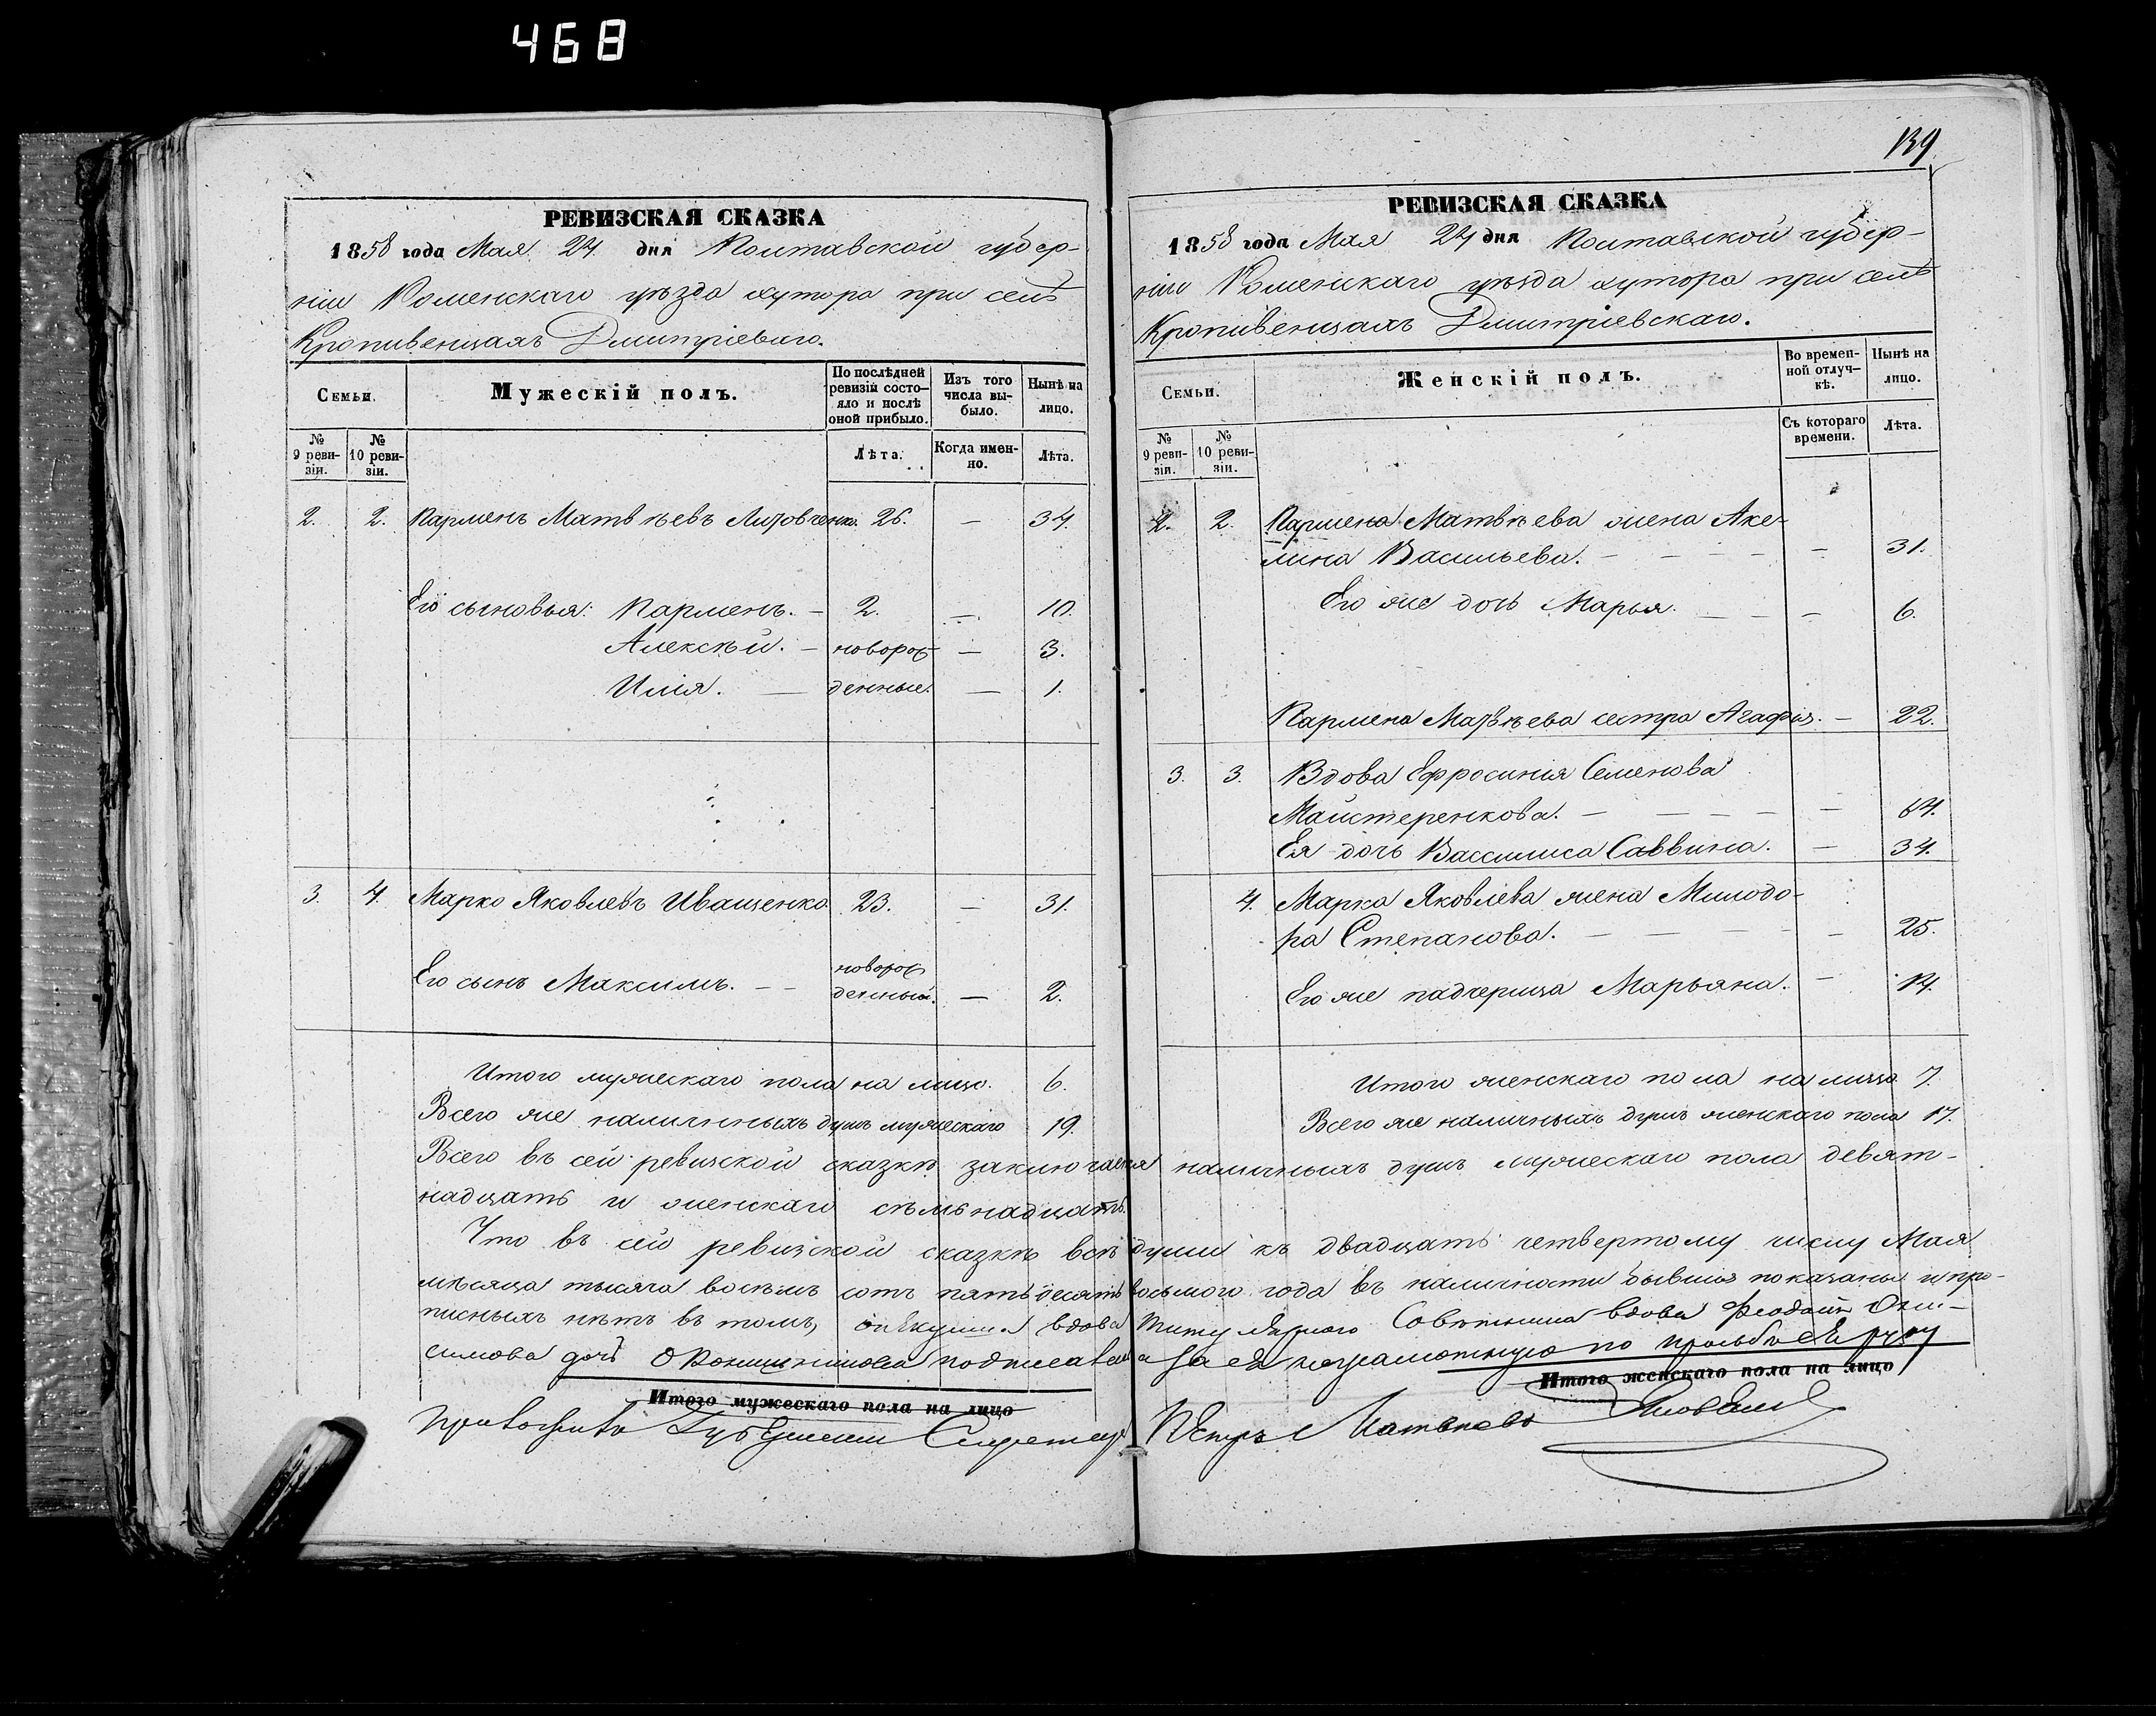 468
139
РЕВИЗСКАЯ СКАЗКА
1858 года Мая 24 дня Полтавской губер-
ніи Роменскаго уѣзда хутора при селѣ
Кропивенцахъ Дмитріеваго.
Семьи.
Мужескій полъ.
По послѣдней ревизіи состо-яло и послѣ оной прибыло.
Изъ того числа вы-было.
Нынѣ на лицо.
№ 9 реви-зіи.
№ 10 реви-зіи.
Лѣта.
Когда имен-но.
Лѣта.
2. 2. Парменъ Матвѣевъ 26. — 34.
Его сыновья: Парменъ. — 2. — 10.
Алексѣй. — новорож- — 3.
Илія. — денные. — 1.
3. 4. Марко Яковлевъ Иващенко 23. — 31.
новорож
Его сынъ Максимъ. — — денный. — 2.
Итого мужескаго пола на лицо. 6.
Всего же наличныхъ душъ мужескаго 19.
РЕВИЗСКАЯ СКАЗКА
1858 года Мая 24 дня Полтавской губер-
ніи Роменскаго уѣзда хутора при селѣ
Кропивенцахъ Дмитріевскаго.
Семьи.
Женскій полъ.
Во времен-ной отлуч-кѣ.
Нынѣ на лицо.
№ 9 реви-зіи.
№ 10 реви-зіи.
Съ котораго времени.
Лѣта.
2. 2. Пармена Матвѣева жена Аке-
лина Васильева. — — — — — 31.
Его же дочь Марья. — — — 6.
Пармена Матвѣева сестра Агафья. — 22.
3. 3. Вдова Ефросинія Семенова
Майстеренкова. — — — — — 64.
Ея дочь Вассилиса Саввина. — 34.
4. Марка Яковлева жена Милодо-
ра Степанова. — — — — — 25.
Его же падчерица Марьяна. — 14.
Итого женскаго пола на лицо 7.
Всего же наличныхъ душъ женскаго пола 17.
Всего въ сей ревизской сказкѣ заключается наличныхъ душъ мужескаго пола девят-
надцать и женскаго сѣмьнадцать.
Что въ сей ревизской сказкѣ всѣ души къ двадцать четвертому числу Мая
мѣсяца тысяча восѣмь сотъ пятьдесятъ восьмого года въ наличности бывшія показаны и про-
писныхъ нѣтъ въ томъ, опѣкунша вдова Титулярного Совѣтница вдова Онис-
симова дочь подписалась а за ея неграмотную по прозьбѣ Ея руку
Итого мужескаго пола на лицо
Итого женскаго пола на лицо
приложилъ Губернский Секретарь Петръ Яковлевъ